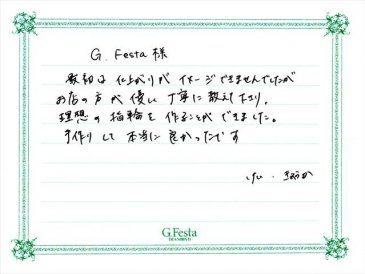 G. Festa 様
最初は 仕上がりが イメージできませんでしたが
お店の方が 優しい 丁寧に 教えて下さり、
理想の 指輪を 作ることができました。
手作りして 本当に 良かったです
G.Festa
DIAMOND